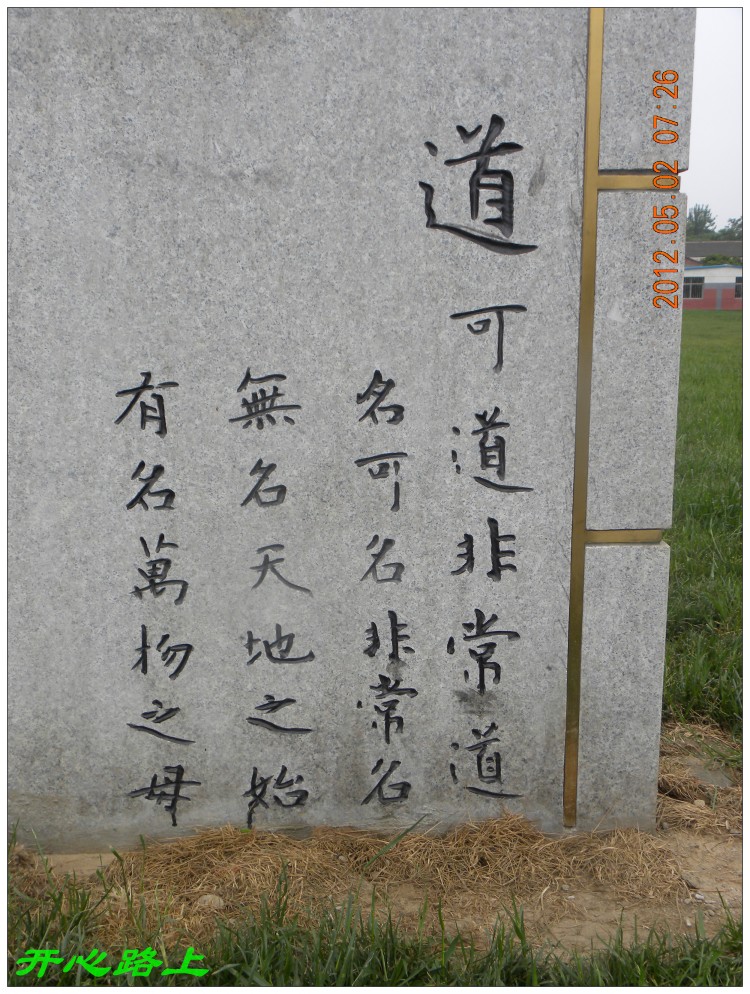 道可道非常道
名可名非常名
無名天地之始
有名萬物之母
2012.05.02 07:26
开心路上